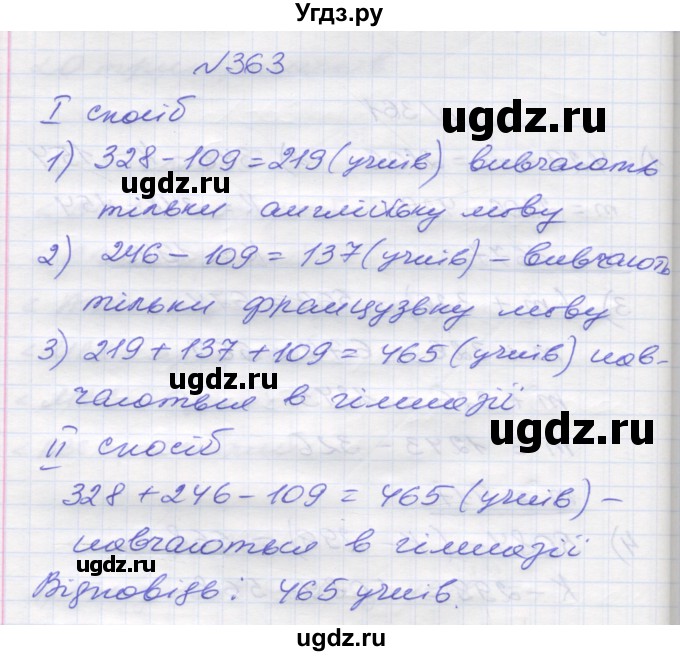 Угдз.ру
№363
I спосіб
1) 328 - 109 = 219 (учнів) вивчають
тільки англійську мову
2) 246 - 109 = 137 (учнів) - вивчають
тільки французьку мову
3) 219 + 137 + 109 = 465 (учнів) нав-
чаються в гімназії
II спосіб
328 + 246 - 109 = 465 (учнів) -
навчаються в гімназії
Відповідь: 465 учнів.
ugdz.ru
ugdz.ru
ugdz.ru
ugdz.ru
ugdz.ru
ugdz.ru
ugdz.ru